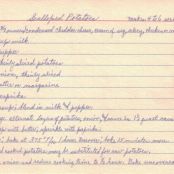 Scalloped Potatoes makes 4 to 6
condensed cheddar cheese, cream of celery, chicken or
cup milk
pepper
thinly sliced potatoes
onion, thinly sliced
butter or margarine
paprika
soup; blend in milk & pepper.
alternate layers of potatoes, onion, & sauce in 1½ quart
top with butter; sprinkle with paprika
bake at 375° F. for 1 hour. Uncover; bake 15 min. more
cooked potatoes may be substituted for raw potatoes.
onion and reduce cooking time to ½ hour. Bake uncovered